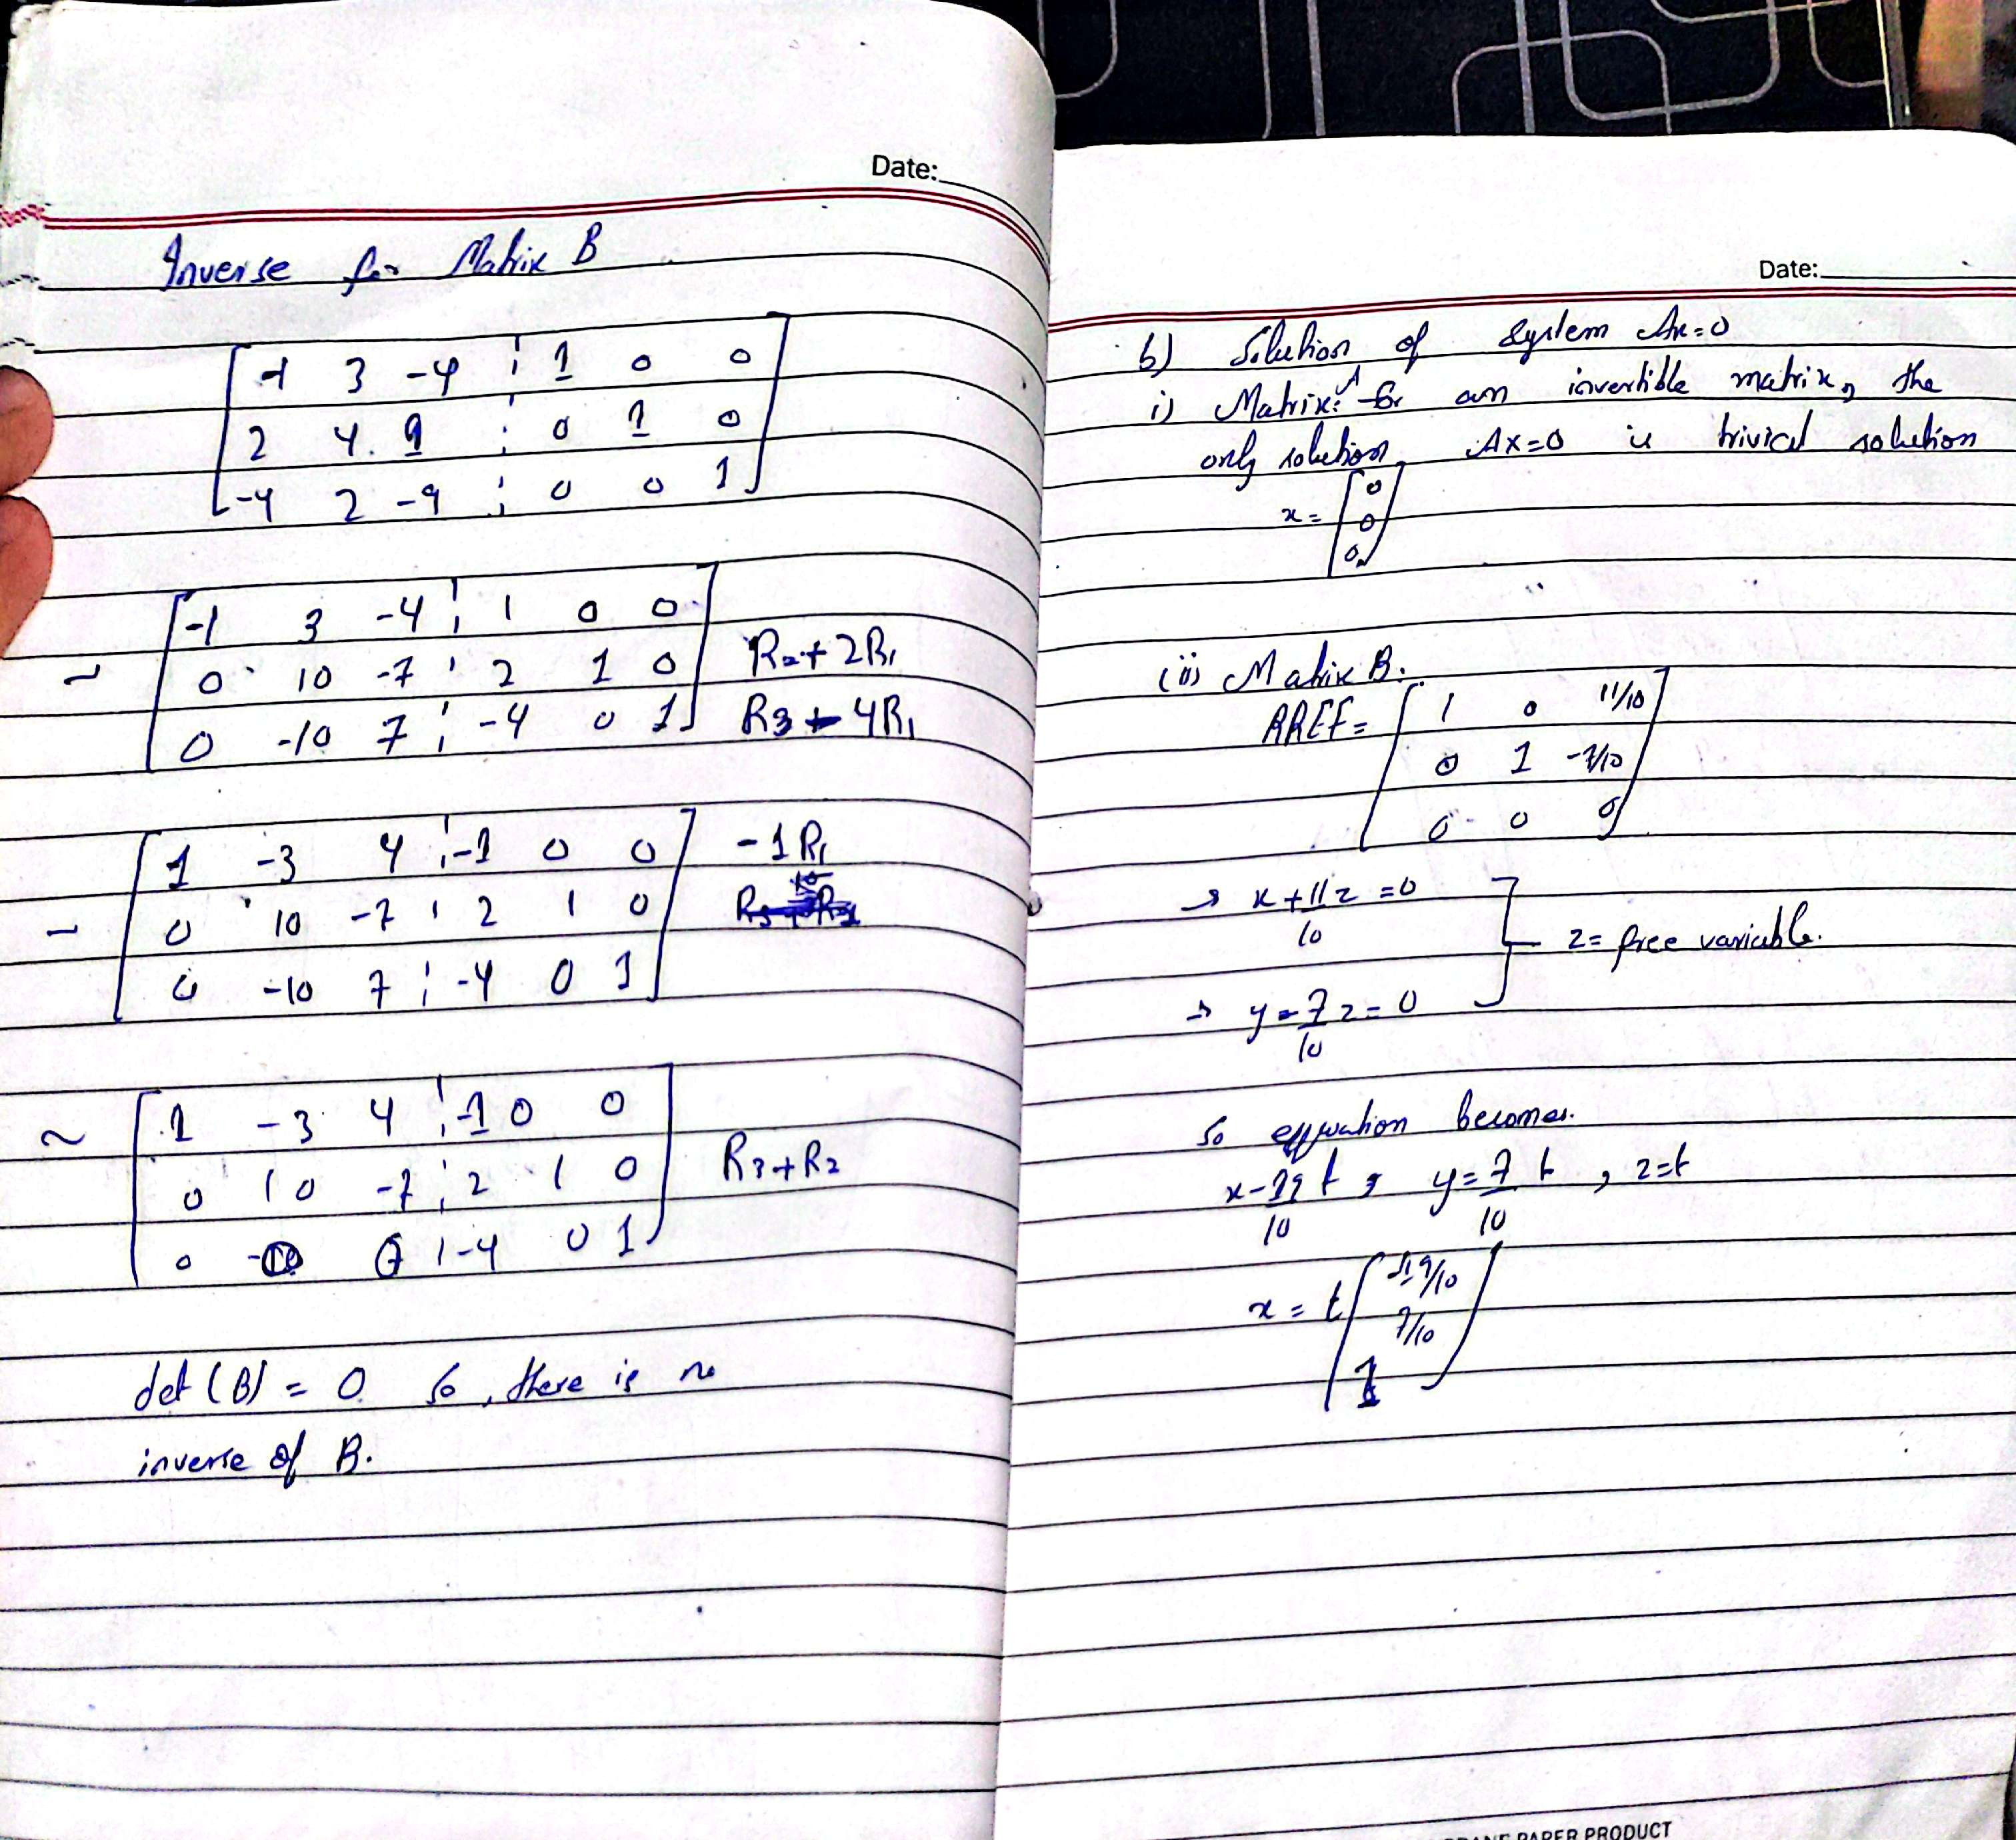 Date:
Inverse for Matrix B
-1 3 -4 ¦ 1 0 0
2 4 1 ¦ 0 1 0
-4 2 -9 ¦ 0 0 1
~ -1 3 -4 ¦ 1 0 0
0 10 -7 ¦ 2 1 0 R2+2R1
0 -10 7 ¦ -4 0 1 R3-4R1
~ 1 -3 4 ¦ -1 0 0 -1R1
0 10 -7 ¦ 2 1 0
0 -10 7 ¦ -4 0 1
~ 1 -3 4 ¦ -1 0 0
0 10 -7 ¦ 2 1 0 R3+R2
0 0 0 ¦ -4 0 1
det (B) = 0 so, there is no
inverse of B.
Date:
b) Solution of system Ax=0
i) Matrix A: for an invertible matrix, the
only solution, Ax=0 is trivial solution
x = [0
0
0]
(ii) Matrix B:
RREF = 1 0 11/10
0 1 -7/10
0 0 0
→ x + 11/10 z = 0
z = free variable.
→ y - 7/10 z = 0
So equation becomes.
y = 7/10 t, z=t
x = t
7/10
1
PAPER PRODUCT